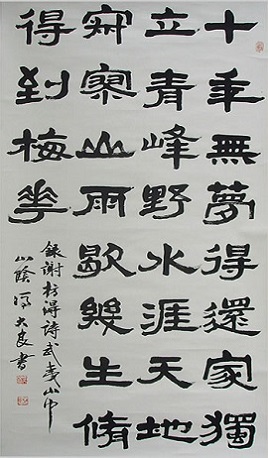 十秊無夢得還家獨
立青峰野水涯天地
寂寥山雨歇幾生脩
得到梅花
錄謝枋得詩武夷山中
山陰大良書